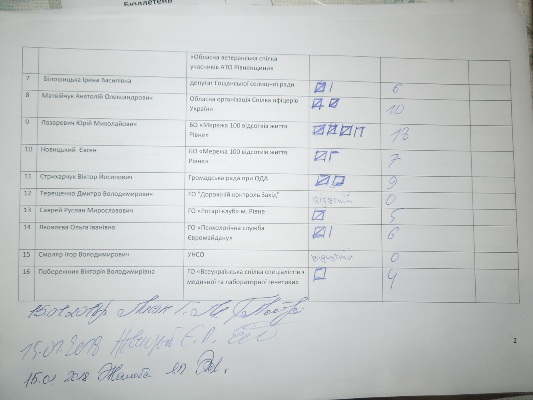 Бюллетень
«Обласна ветеранська спілка
учасників АТО Рівненщини»
7 Білошицька Ірина Василівна депутат Гощанської селищної ради 6
8 Матвійчук Анатолій Олександрович Обласна організація Спілки офіцерів
України 10
9 Лазарович Юрій Миколайович БО «Мережа 100 відсотків життя
Рівне» 13
10 Новицький Євген БО «Мережа 100 відсотків життя
Рівне» 7
11 Стрихарчук Віктор Йосипович Громадська рада при ОДА 9
12 Терещенко Дмитро Володимирович ГО "Дорожній контроль Захід" відсутній 0
13 Саврей Руслан Мирославович ГО «Ротарі клуб» м. Рівне 5
14 Яковлева Ольга Іванівна ГО «Психологічна служба
Євромайдану» 6
15 Смоляр Ігор Володимирович УНСО відсутній 0
16 Побережник Вікторія Володимирівна ГО «Всеукраїнська спілка спеціалістів з
медичної та лабораторної генетики» 4
15.01.2018р
15.01.2018 Новицький Є.
2
15.01 2018